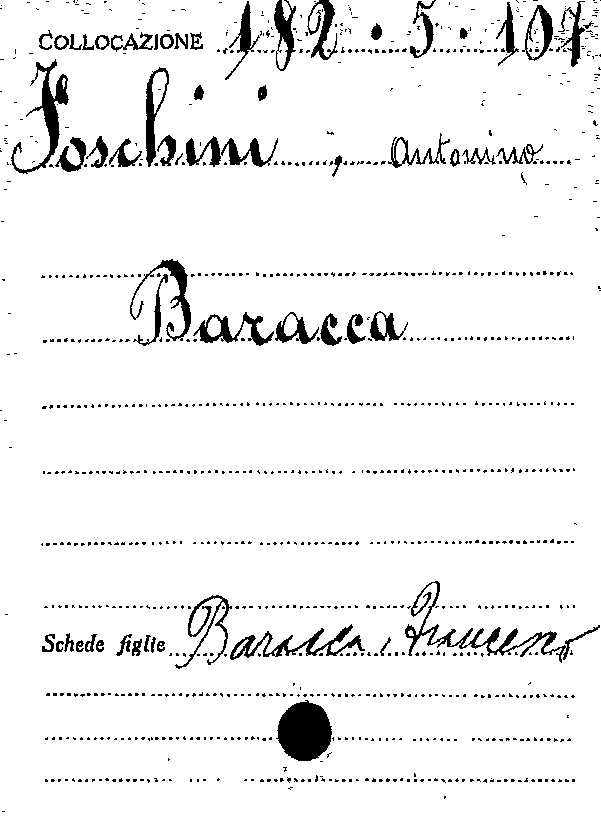 COLLOCAZIONE 182.5.107
Foschini, Antonino
Baracca
Schede figlie Baracca, Francesco